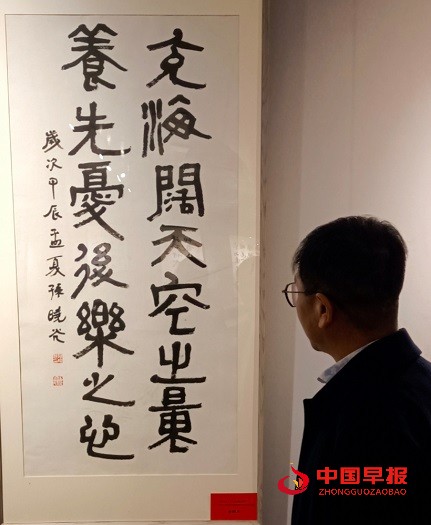 充海闊天空之量
養先憂後樂之心
歲次甲辰孟夏孫曉光
中国早报
ZHONGGUOZAOBAO